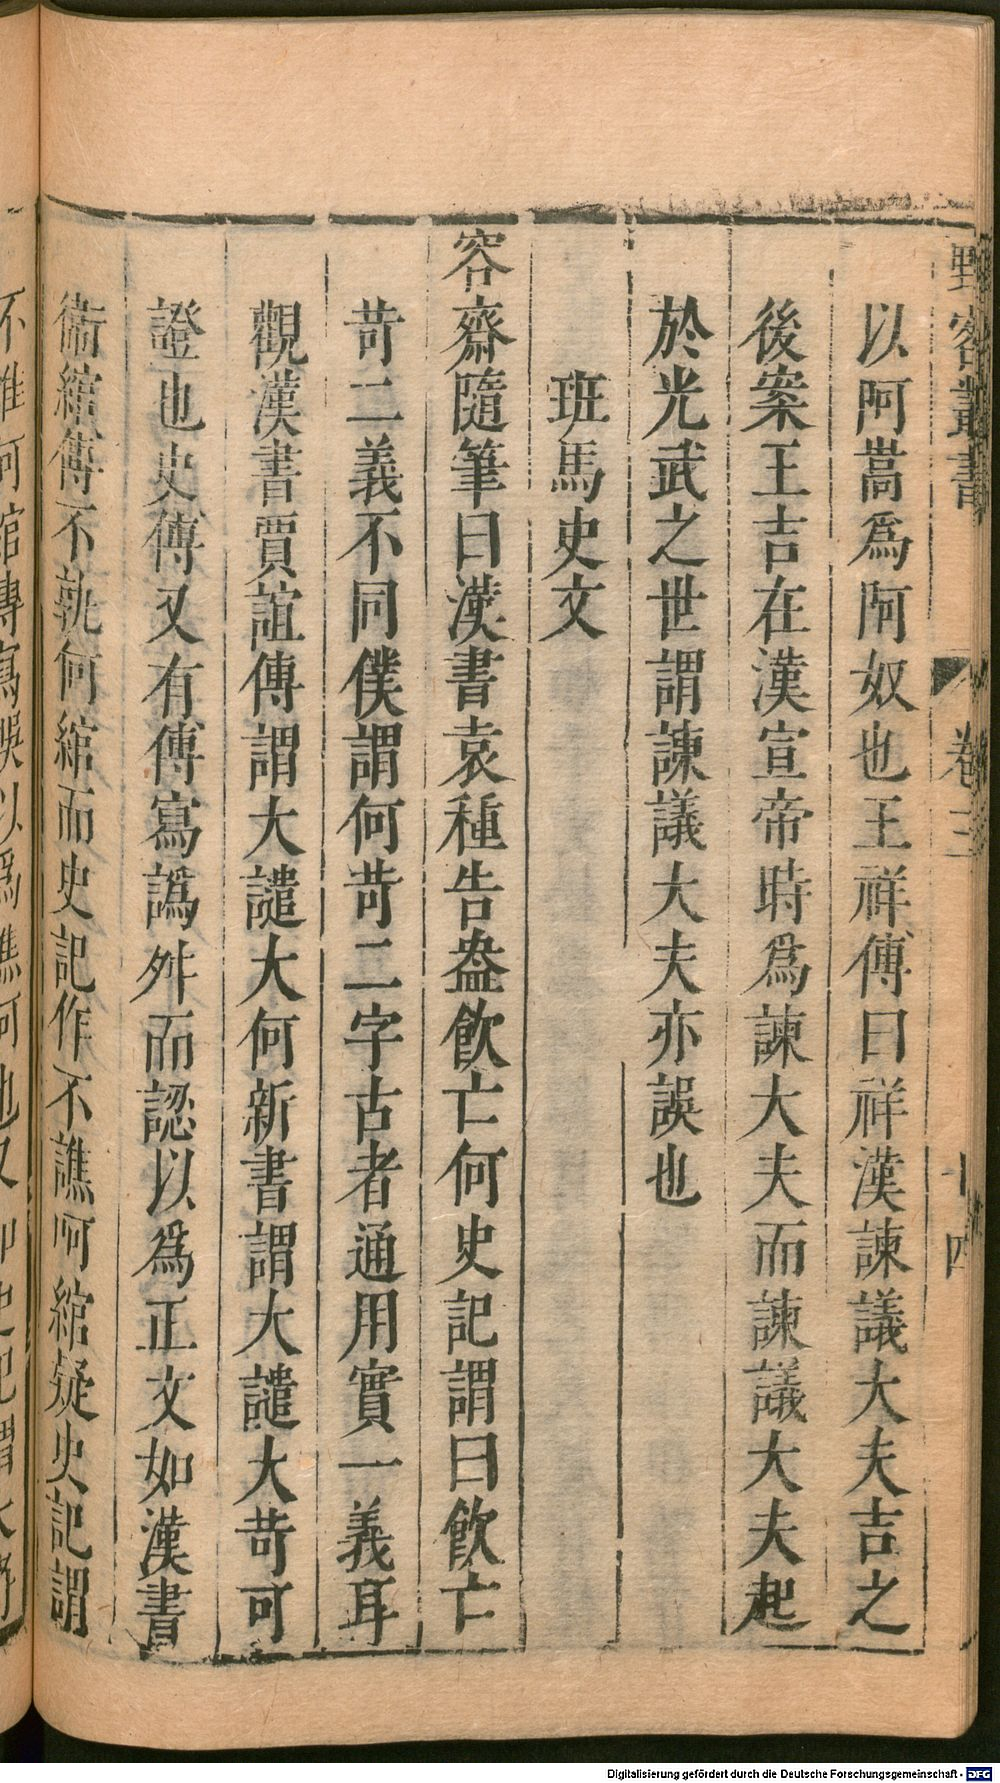 野客叢書
卷三
十四
以阿嵩爲阿奴也王祥傳曰祥漢諫議大夫吉之
後案王吉在漢宣帝時爲諫大夫而諫議大夫起
於光武之世謂諫議大夫亦誤也
班馬史文
容齋隨筆曰漢書袁種告盎飲亡何史記謂曰飲亡
苛二義不同僕謂何苛二字古者通用實一義耳
觀漢書賈誼傳謂大譴大何新書謂大譴大苛可
證也史傳又有傳寫譌舛而認以爲正文如漢書
衞綰傳不孰何綰而史記作不譙呵綰疑史記謂
Digitalisierung gefördert durch die Deutsche Forschungsgemeinschaft - DFG